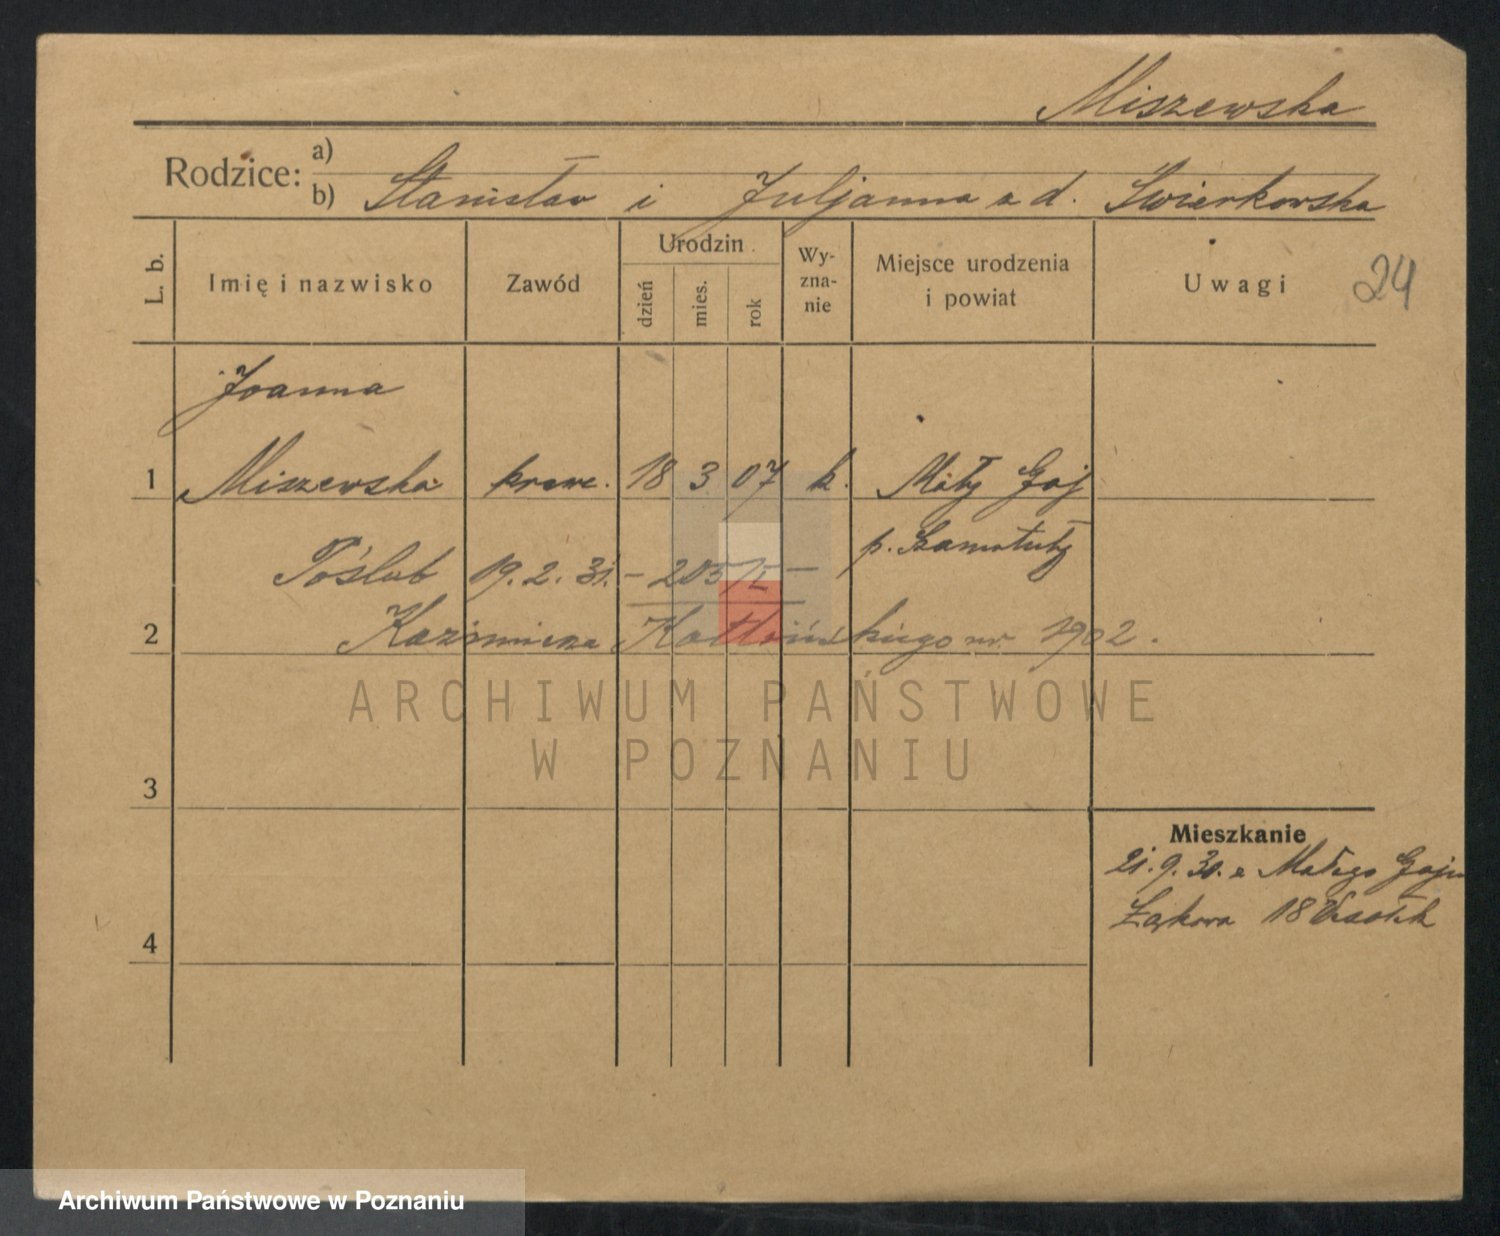 Miszewska
Rodzice: a)
b) Stanisław i Juljanna z d. Świerkowska
L. b. Imię i nazwisko Zawód Urodzin dzień mies. rok Wyznanie Miejsce urodzenia i powiat Uwagi 24
Joanna
1 Miszewska kraw. 18 3 07 k. Mały Gaj
p. Szamotuły
Poślub 19.2.31. – 205/I –
2 Kazimierza Kotlińskiego ur. 1902.
ARCHIWUM PAŃSTWOWE
W POZNANIU
3
Mieszkanie
21.9.30. z Małego Gaju
Łąkowa 18
4
Archiwum Państwowe w Poznaniu